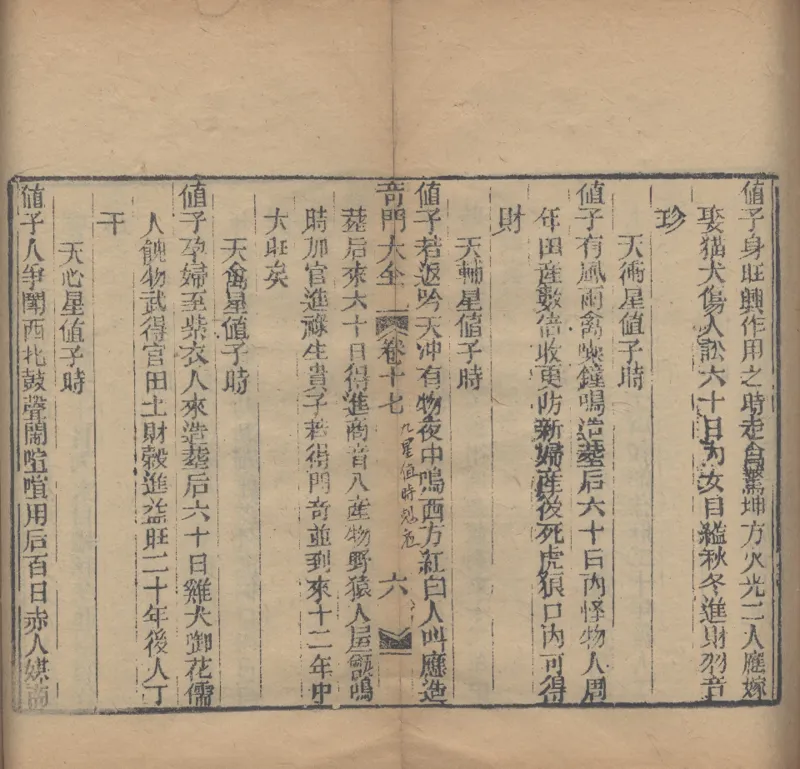 値子身旺興作用之時走禽驚坤方火光二人應嫁
娶猫犬傷人訟六十日內女自縊秋冬進財羽音
珍
天衝星値子時
値子有風雨禽噪鐘鳴造塟后六十日內怪物人周
年田産數倍收更防新婦産後死虎狼口內可得
財
天輔星値子時
値子若返吟天冲有物夜中鳴西方紅白人叫應造
奇門大全 卷十七 九星値時尅應 六
塟后來六十日得進商音人産物野猿人屋甑鳴
時加官進祿生貴子若得門奇並到來十二年中
大旺矣
天禽星値子時
値子孕婦至紫衣人來造塟后六十日雞犬啣花儒
人餽物武得官田土財穀進益旺二十年後人丁
干
天心星値子時
値子人爭鬧西北鼓聲鬧喧喧用后百日赤人媒